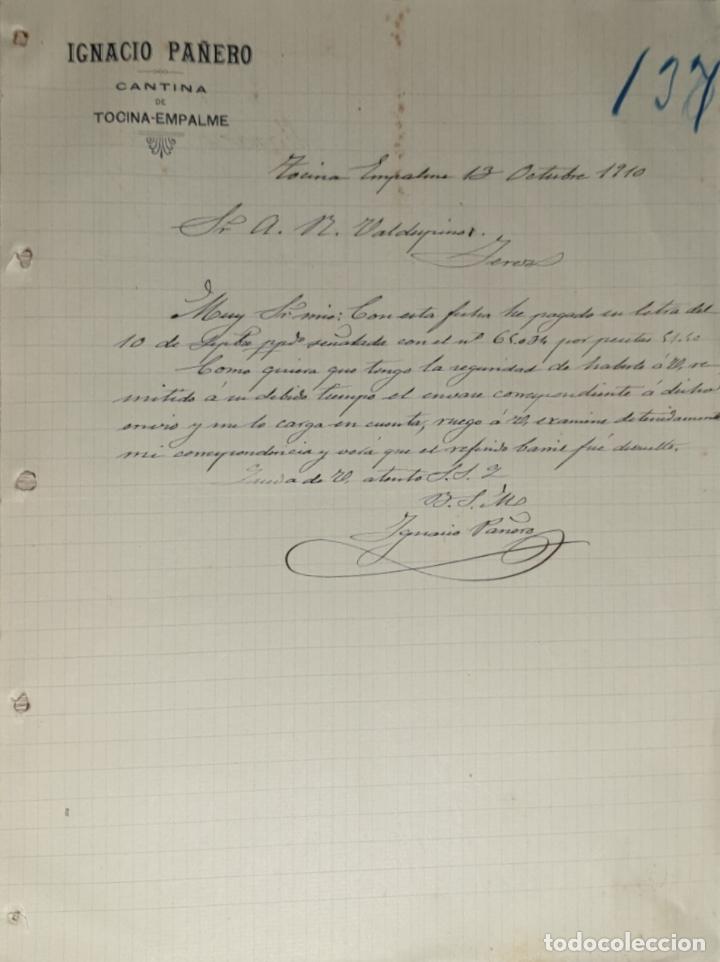 IGNACIO PAÑERO
CANTINA
DE
TOCINA-EMPALME
137
Tocina Empalme 13 Octubre 1910
Sr A. R. Valdespino.
Jerez
Muy Sr. mio: Con esta fecha he pagado su letra del
10 de Sepbre ppdo señalada con el nº 65034 por pesetas 51.50
Como quiera que tengo la seguridad de haberle á V. re
mitido á su debido tiempo el envase correspondiente á dicho
envio y me lo carga en cuenta, ruego á V. examine detenidamente
mi correspondencia y verá que el referido barril fué devuelto.
Queda de V. atento S.S.
B. S. M.
Ignacio Pañero
todocoleccion
todocoleccion.net